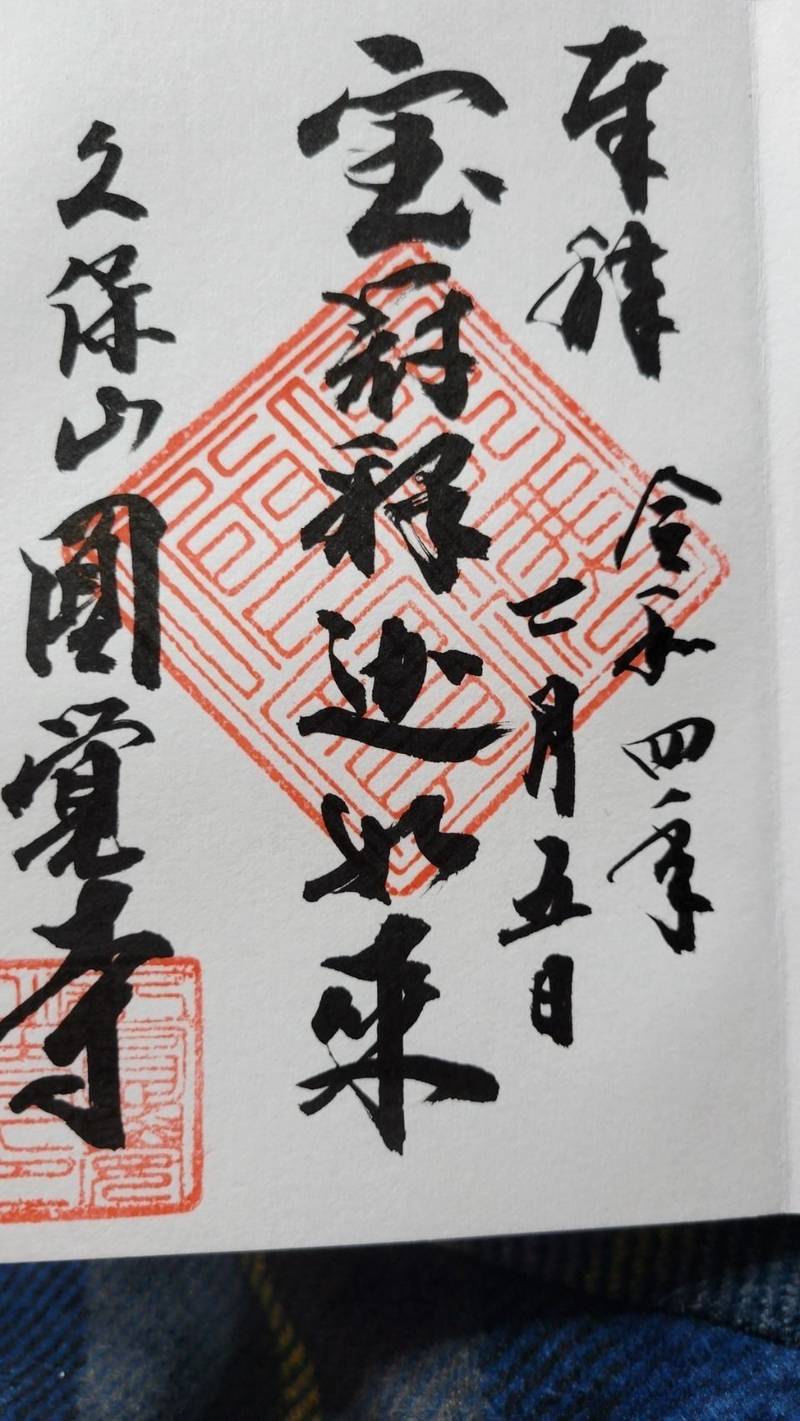 奉拝
令和四年
月五日
宝冠釈迦如来
久保山
圓覚寺